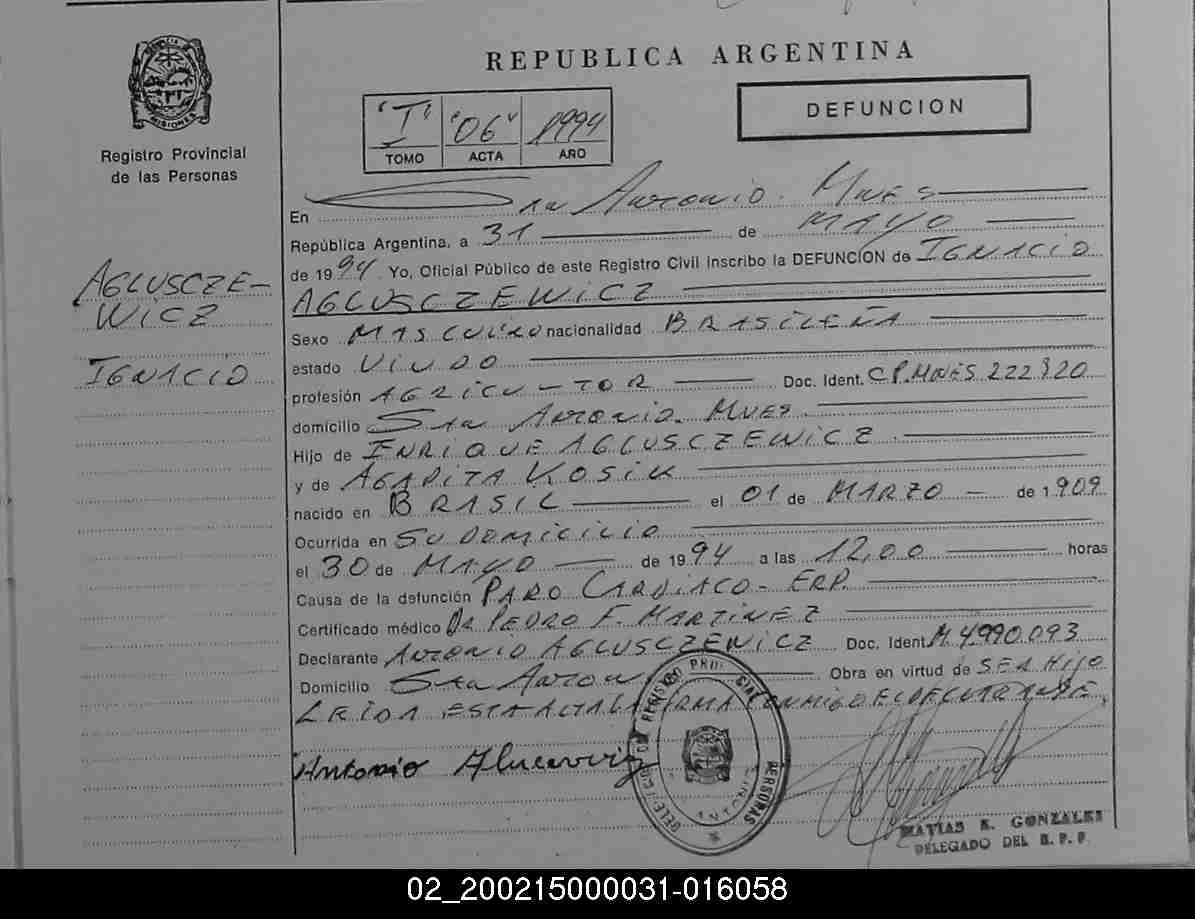 REPUBLICA ARGENTINA
MISIONES
Registro Provincial
de las Personas
"I" "06" 1994
TOMO ACTA AÑO
DEFUNCION
AGLUSCZE-
WICZ
IGNACIO
En San Antonio. Mnes
República Argentina, a 31 de MAYO
de 1994 Yo, Oficial Público de este Registro Civil inscribo la DEFUNCION de IGNACIO
AGLUSCZEWICZ
Sexo MASCULINO nacionalidad BRASILEÑA
estado VIUDO
profesión AGRICULTOR Doc. Ident. C.P. MNES. 222320
domicilio San Antonio. Mnes.
Hijo de ENRIQUE AGLUSCZEWICZ.
y de AGAPITA KOSIK
nacido en BRASIL el 01 de MARZO de 1.909
Ocurrida en SU DOMICILIO
el 30 de MAYO de 1994 a las 12,00 horas
Causa de la defunción PARO CARDIACO - ERP.
Certificado médico Dr PEDRO F. MARTINEZ
Declarante ANTONIO AGLUSCZEWICZ Doc. Ident. M. 4.990.093
Domicilio San Antonio Obra en virtud de SER HIJO
LEIDA ESTA ACTA LA FIRMA CONMIGO EL DECLARANTE.
Antonio
REGISTRO PROVINCIAL PERSONAS
MATIAS R. GONZALEZ
DELEGADO DEL R. P. P.
02_200215000031-016058